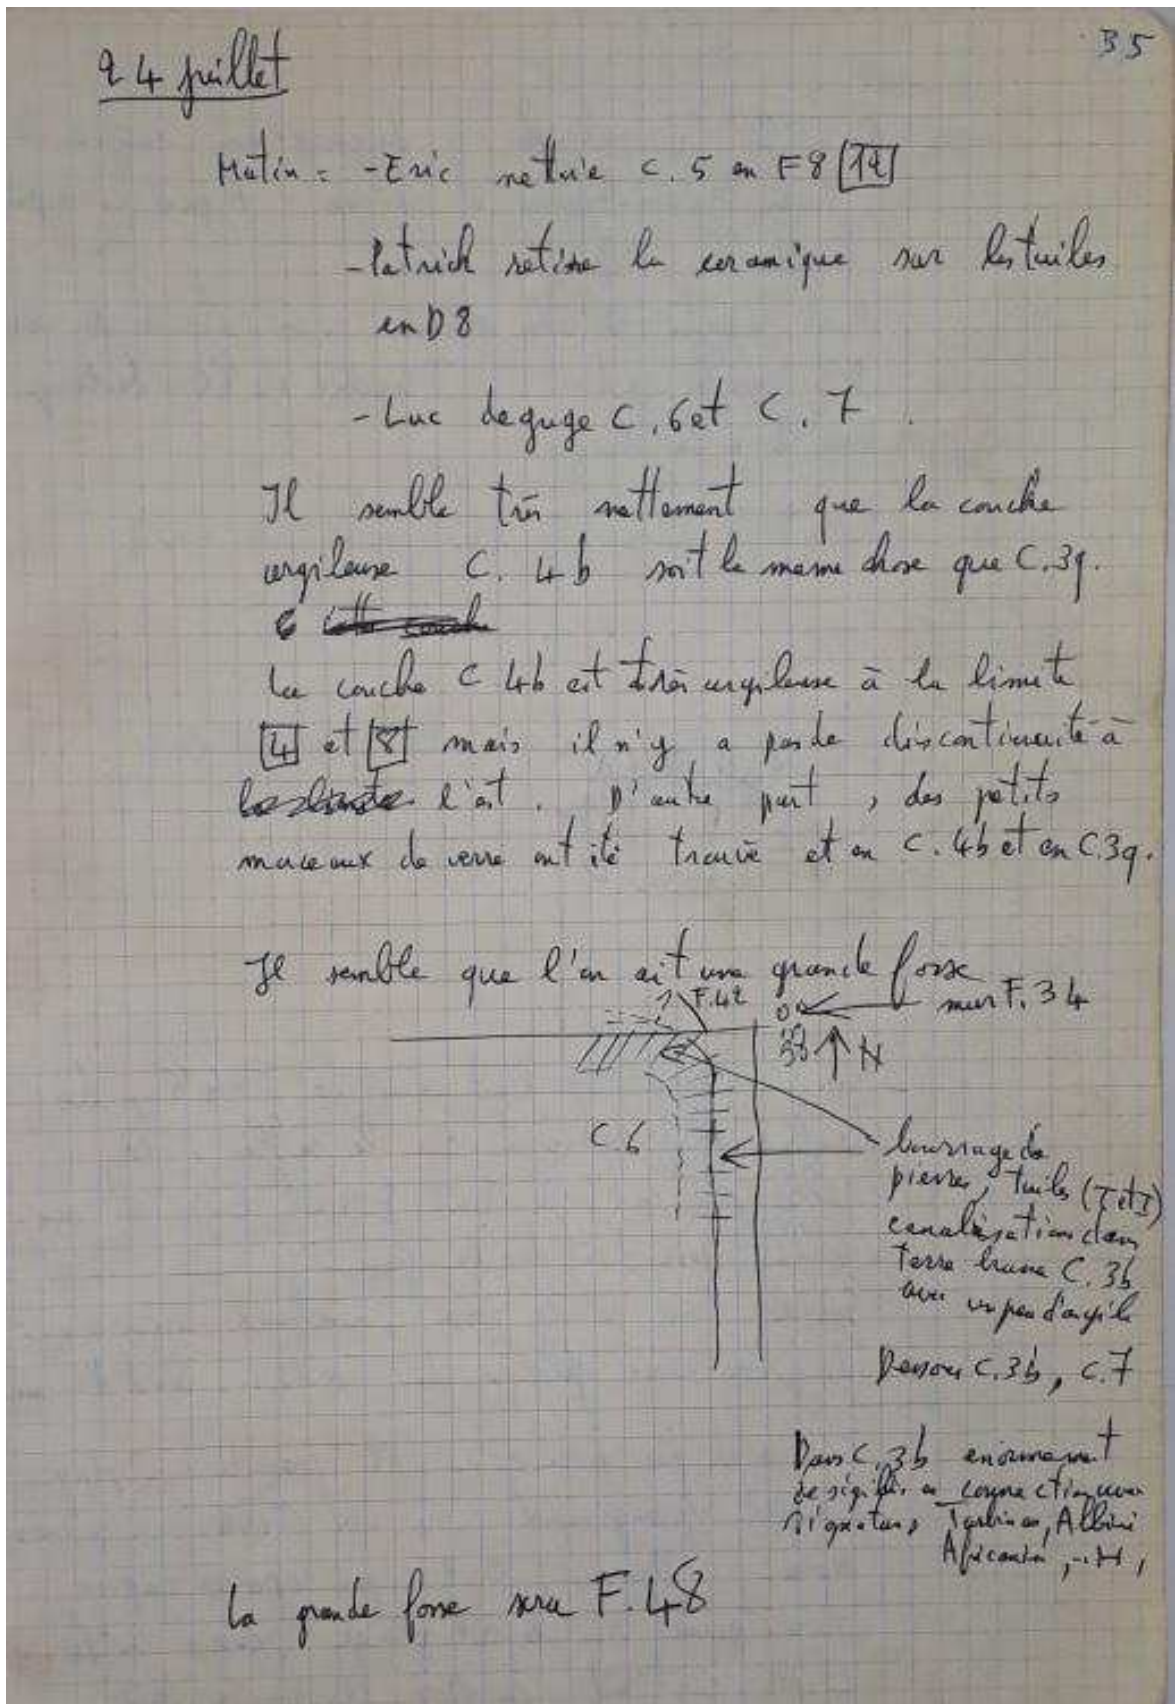 35
24 juillet
Matin = - Eric nettoie C. 5 en F8 12
- Patrick retire la ceramique sur les tuiles
en D8
- Luc degage C. 6 et C. 7
Il semble très nettement que la couche
argileuse C. 4b soit la meme chose que C. 3q.
La couche C 4b est très argileuse à la limite
4 et 8 mais il n'y a pas de discontinuité à
l'est. D'autre part, des petits
morceaux de verre ont été trouvé et en C. 4b et en C.3q.
Il semble que l'on ait une grande fosse
F.42
mur F. 34
N
C.6
bourrage de
pierres, tuiles (T et I)
canalisations dans
Terre brune C. 3b
avec un peu d'argile
Dessous C.3b, C.7
Dans C. 3b enormement
de sigillée en
signatures, Albini
La grande fosse sera F.48